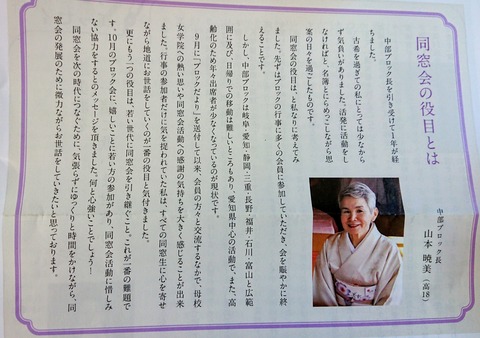 同窓会の役目とは
中部ブロック長
山本 暁美(高18)
中部ブロック長を引き受けて1年が経
ちました。
古希を過ぎての私にとっては少なから
ず気負いがありました。活発に活動をし
なければと、名簿とにらめっこしながら思
案の日々を過ごしたものです。
同窓会の役目は、と私なりに考えてみ
ました。先ずはブロックの行事に多くの会員に参加していただき、会を賑やかに終
えることです。
しかし、中部ブロックは岐阜・愛知・静岡・三重・長野・福井・石川・富山と広範
囲に及び、日帰りでの移動は難しいところもあり、愛知県中心の活動で、また、高
齢化のため年々出席者が少なくなっているのが現状です。
9月に「ブロックだより」を送付して以来、会員の方々と交流するなかで、母校
女学院への熱い思いや同窓会活動への感謝の気持ちを大きく感じることが出来
ました。行事の参加者だけに気を捉われていた私は、すべての同窓生に心を寄せ
ながら地道にお世話をしていくのが一番の役目と気付きました。
更にもう一つの役目は、若い世代に同窓会を引き継ぐこと。これが一番の難題で
す。10月のブロック会に、嬉しいことに若い方の参加があり、同窓会活動に惜しみ
ない協力をするとのメッセージを頂きました。何と心強いことでしょう!
同窓会を次の時代につなぐために、気張らずにゆっくりと時間をかけながら、同
窓会の発展のために微力ながらお世話をしていきたいと思っております。